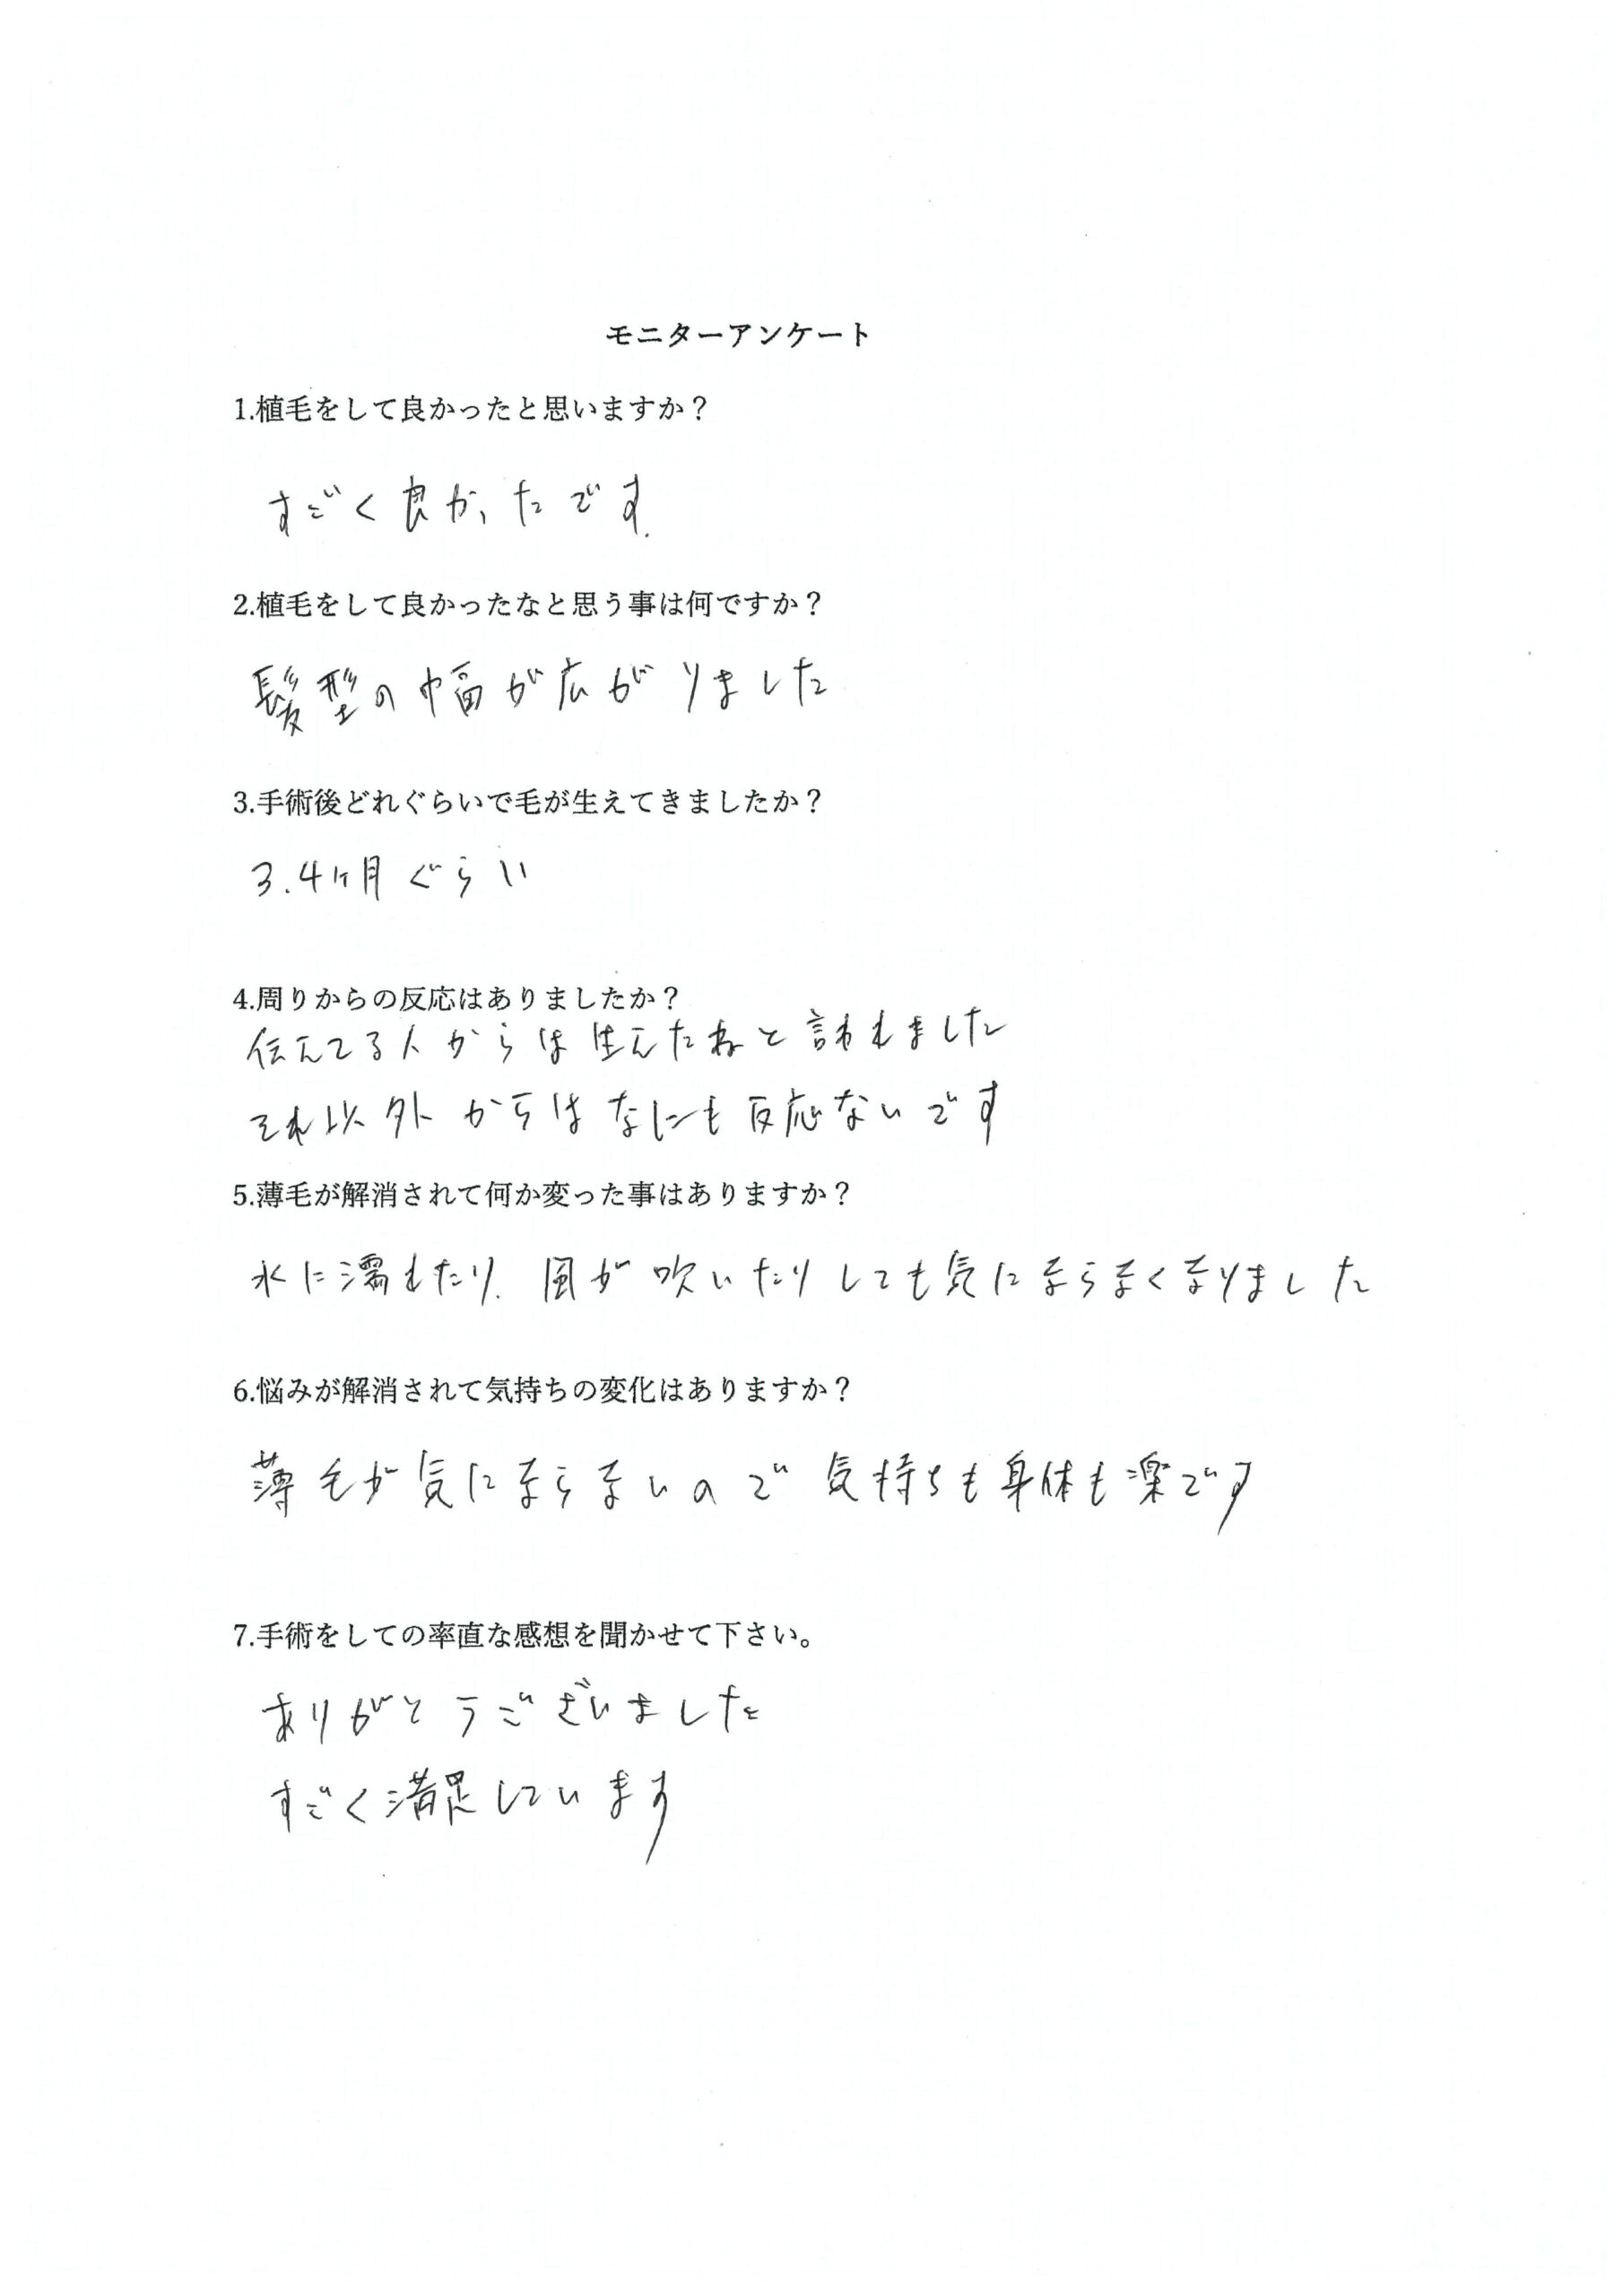 モニターアンケート
1.植毛をして良かったと思いますか？
すごく良かったです.
2.植毛をして良かったなと思う事は何ですか？
髪型の幅が広がりました
3.手術後どれぐらいで毛が生えてきましたか？
3.4ヶ月ぐらい
4.周りからの反応はありましたか？
伝えてる人からは生えたねと言われました
それ以外からはなにも反応ないです
5.薄毛が解消されて何か変った事はありますか？
水に濡れたり.風が吹いたりしても気にならなくなりました
6.悩みが解消されて気持ちの変化はありますか？
薄毛が気にならないので気持ちも身体も楽です
7.手術をしての率直な感想を聞かせて下さい。
ありがとうございました
すごく満足しています